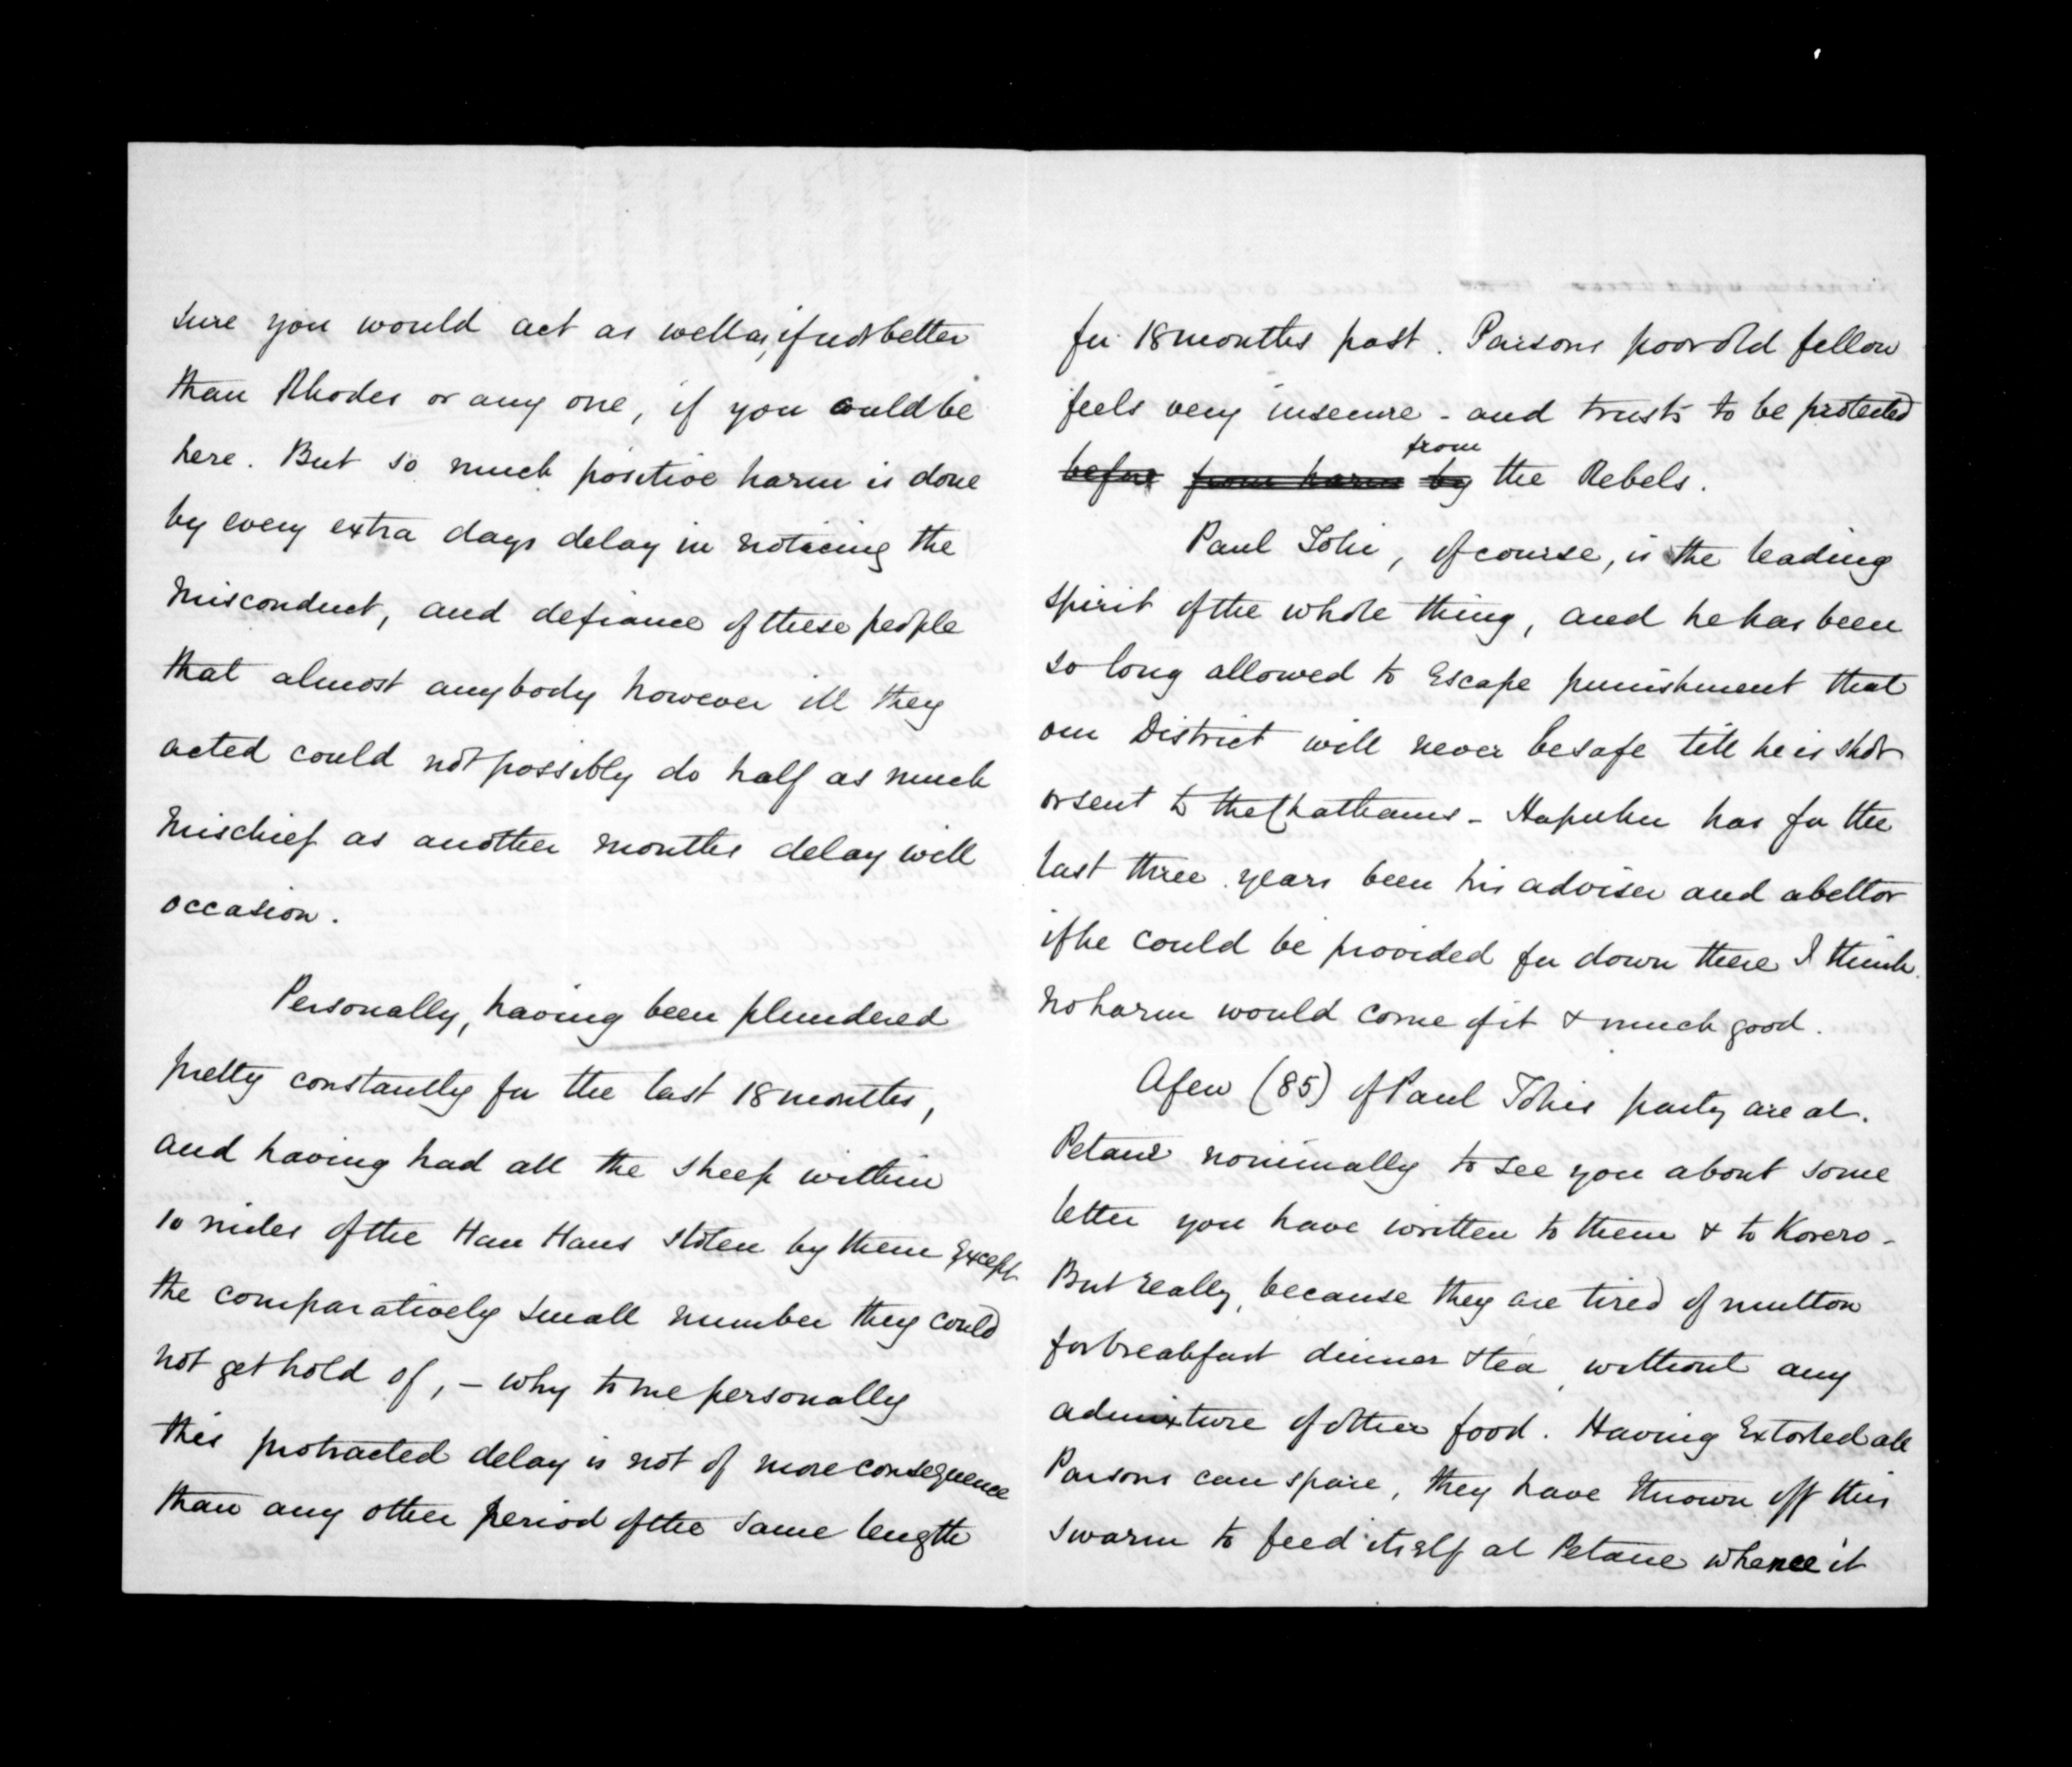 sure you would act as well as, if not better
than Rhodes or any one, if you could be
here. But so much positive harm is done
by every extra days delay in noticing the
misconduct, and defiance of these people
that almost anybody however ill they
acted could not possibly do half as much
mischief as another months delay will
occasion.
Personally, having been plundered
pretty constantly for the last 18 months,
and having had all the sheep within
10 miles of the Hau Haus stolen by them except
the comparatively small number they could
not get hold of, - why to me personally
this protracted delay is not of more consequence
than any other period of the same length
for 18 months past. Parsons poor old fellow
feels very insecure - and trusts to be protected
before from harm by from the Rebels.
Paul Tohi, of course, is the leading
spirit of the whole thing, and he has been
so long allowed to escape punishment that
our District will never be safe till he is shot
or sent to the Chathams - Hapuku has for the
last three years been his adviser and abettor
if he could be provided for down there I think
no harm would come of it & much good.
A few (85) of Paul Tohis party are at
Petane nominally to see you about some
letter you have written to them & to Korero -
But really, because they are tired of mutton
for breakfast dinner & tea, without any
admixture of other food. Having extorted all
Parsons can spare, they have thrown off this
swarm to feed itself at Petane whence it